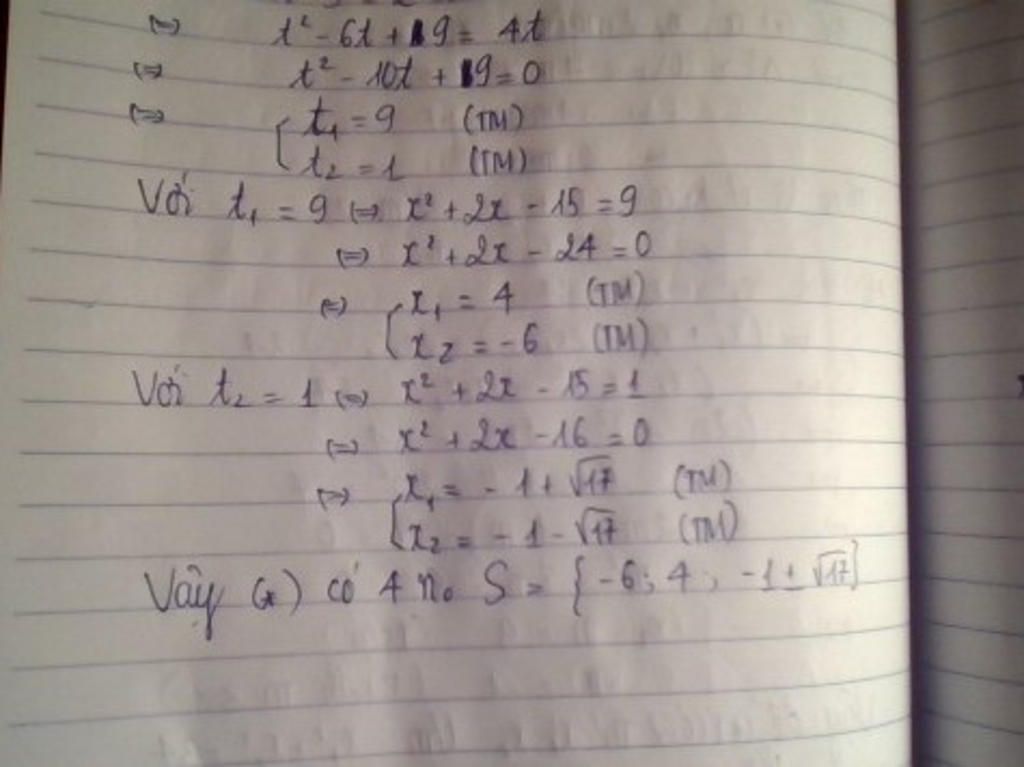 ⇔ t² - 6t + 9 = 4t
⇔ t² - 10t + 9 = 0
⇔ [ t₁ = 9 (TM)
t₂ = 1 (TM)
Với t₁ = 9 ⇔ x² + 2x - 15 = 9
⇔ x² + 2x - 24 = 0
⇔ [ x₁ = 4 (TM)
x₂ = -6 (TM)
Với t₂ = 1 ⇔ x² + 2x - 15 = 1
⇔ x² + 2x - 16 = 0
⇔ [ x₁ = - 1 + √17 (TM)
x₂ = - 1 - √17 (TM)
Vậy (*) có 4 n₀ S = { -6 ; 4 ; -1 ± √17 }